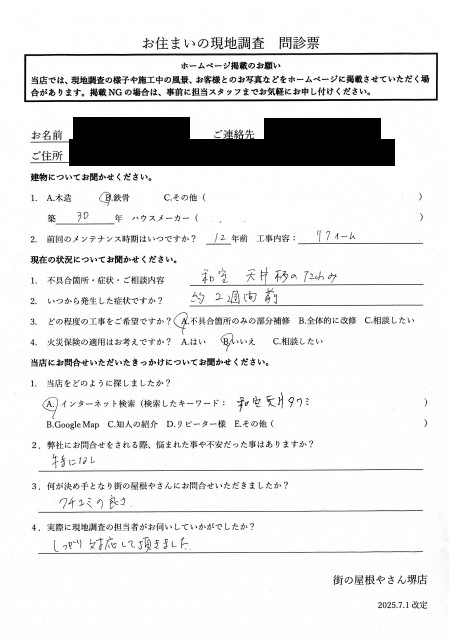 お住まいの現地調査　問診票
ホームページ掲載のお願い
当店では、現地調査の様子や施工中の風景、お客様とのお写真などをホームページに掲載させていただく場
合があります。掲載NGの場合は、事前に担当スタッフまでお気軽にお申し付けください。
お名前　ご連絡先
ご住所
建物についてお聞かせください。
1. A.木造　B.鉄骨　C.その他（　）
築 30 年　ハウスメーカー（　）
2. 前回のメンテナンス時期はいつですか？ 12 年前　工事内容： リフォーム
現在の状況についてお聞かせください。
1. 不具合箇所・症状・ご相談内容　和室 天井 のたわみ
2. いつから発生した症状ですか？　約2週間前
3. どの程度の工事をご希望ですか？ A.不具合箇所のみの部分補修　B.全体的に改修　C.相談したい
4. 火災保険の適用はお考えですか？ A.はい　B.いいえ　C.相談したい
当店にお問合せいただいたきっかけについてお聞かせください。
1. 当店をどのように探しましたか？
A. インターネット検索（検索したキーワード：　和室天井タワミ　）
B.Google Map　C.知人の紹介　D.リピーター様　E.その他（　）
2．弊社にお問合せをされる際、悩まれた事や不安だった事はありますか？
特になし
3．何が決め手となり街の屋根やさんにお問合せいただきましたか？
クチコミの良さ
4．実際に現地調査の担当者がお伺いしていかがでしたか？
しっかり対応して頂きました
街の屋根やさん堺店
2025.7.1 改定